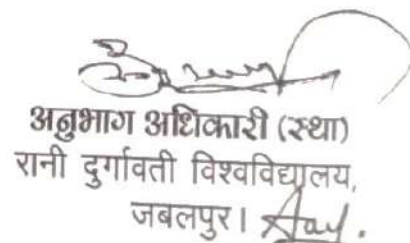 अनुभाग अधिकारी (स्था)
रानी दुर्गावती विश्वविद्यालय,
जबलपुर।